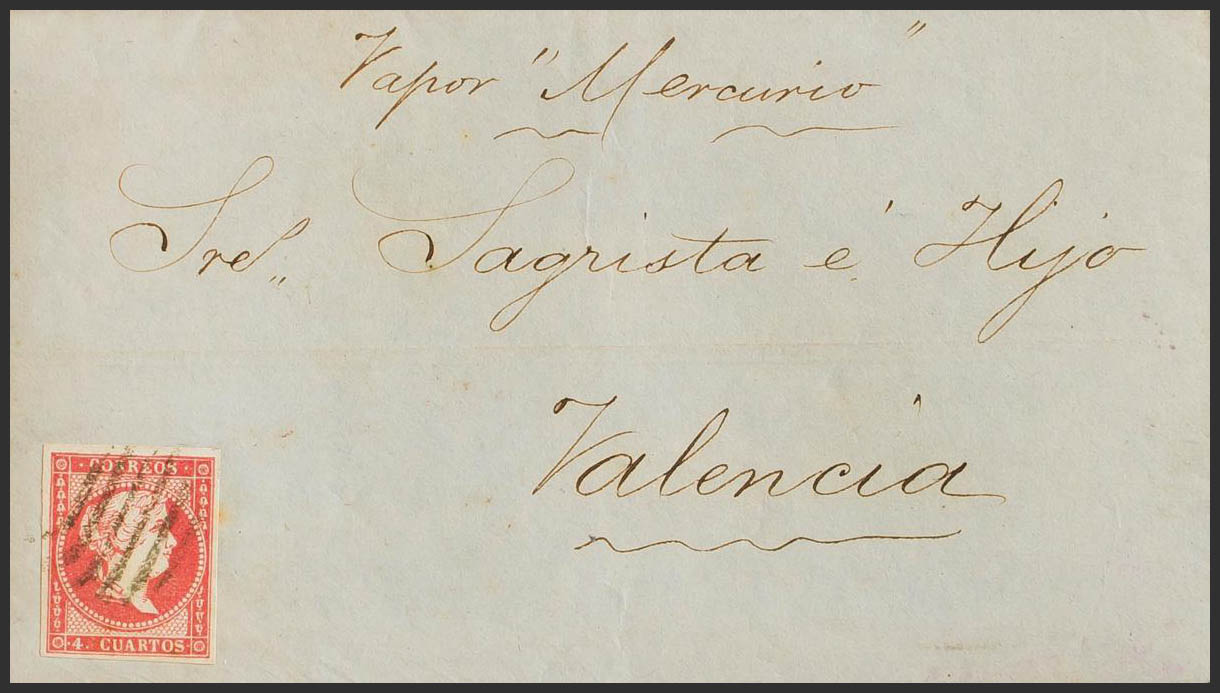 Vapor "Mercurio"
Sres,, Sagrista é Hijo
Valencia
CORREOS
4. CUARTOS